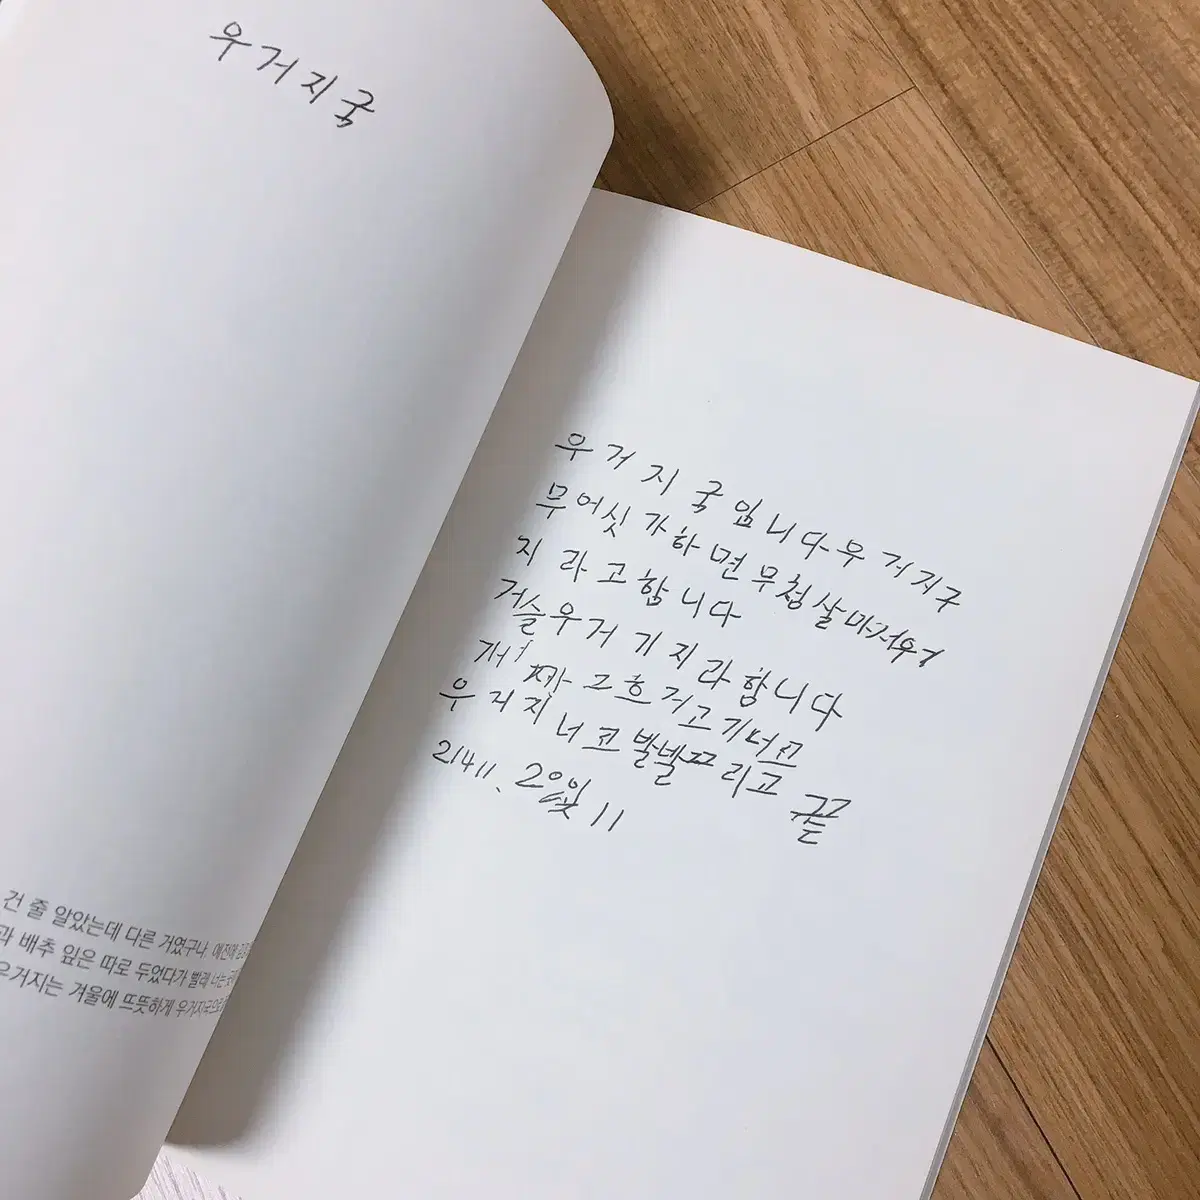 우거지국
건 줄 알았는데 다른 거였구나. 예전에
과 배추 잎은 따로 두었다가 빨래 너는
우거지는 겨울에 뜨뜻하게 우거지국으로
우거지국입니다우거지구
무어싯가하면무첩살마저우거
지라고합니다
거슬우거기지라합니다
재 그흐거고기너고
우거지너코발발끄리고 끝
21411. 2 11